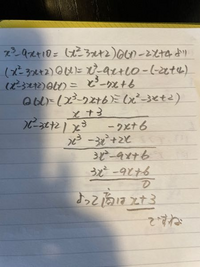 x³-9x+10=(x²-3x+2)Q(x)-2x+4より
(x²-3x+2)Q(x)=x³-9x+10-(-2x+4)
(x²-3x+2)Q(x)=x³-7x+6
Q(x)=(x³-7x+6)÷(x²-3x+2)
x+3
x²-3x+2)x³-7x+6
x³-3x²+2x
3x²-9x+6
3x²-9x+6
0
よって商はx+3
ですね